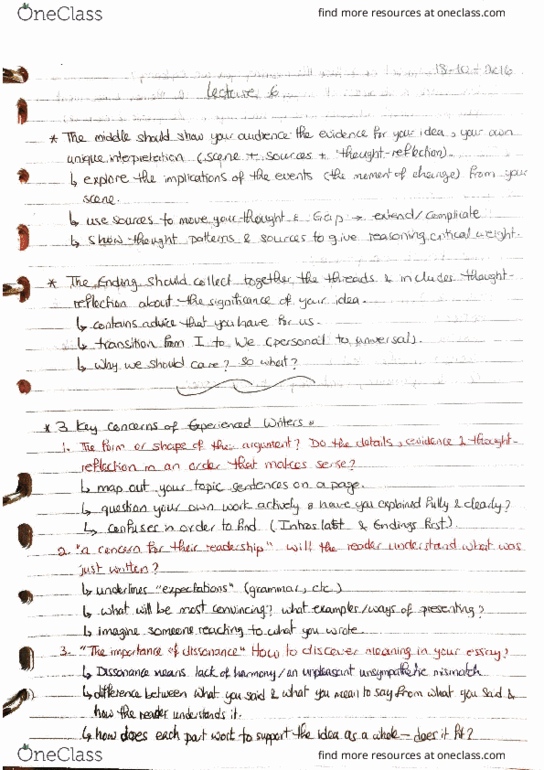 OneClass
find more resources at oneclass.com
18-10-2016
Lecture 6
* The middle should show your audience the evidence for your idea, your own
unique interpretation (scene + sources + thought-reflection).
↳ explore the implications of the events (the moment of change) from your
scene.
↳ use sources to move your thought & Gap → extend/complicate
↳ show thought patterns & sources to give reasoning critical weight.
* The Ending should collect together the threads & includes thought-
reflection about the significance of your idea.
↳ contains advice that you have for us.
↳ transition from I to We (personal to universal).
↳ why we should care? So what?
* 3 Key Concerns of Experienced Writers
1. The form or shape of their argument? Do the details, evidence & thought-
reflection in an order that makes sense?
↳ map out your topic sentences on a page.
↳ question your own work actively & have you explained fully & clearly?
↳ confuser in order to find (Intros last & Endings first).
2. "a concern for their readership" will the reader understand what was
just written?
↳ underlines "expectations" (grammar, etc.)
↳ what will be most convincing? what examples/ways of presenting?
↳ imagine someone reacting to what you wrote.
3. "The importance of dissonance" How to discover meaning in your essay?
↳ Dissonance means lack of harmony/an unpleasant unsympathetic mismatch
↳ difference between what you said & what you mean to say from what you said &
how the reader understands it.
↳ how does each part work to support the idea as a whole - does it fit?
OneClass
find more resources at oneclass.com